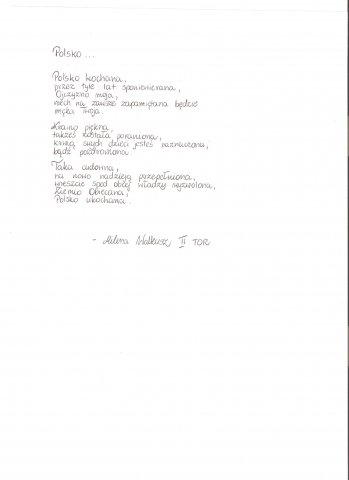 Polsko ...
Polsko kochana,
przez tyle lat sponiewierana,
Ojczyzno moja,
niech na zawsze zapamiętana będzie
męka Twoja.
Kraino piękna,
takżeś została poraniona,
krwią swych dzieci jesteś naznaczona,
bądź pozdrowiona.
Taka cudowna,
na nowo nadzieją przepełniona,
wreszcie spod obcej władzy wyzwolona,
Ziemio Obiecana,
Polsko ukochana.
- Helena II TOR